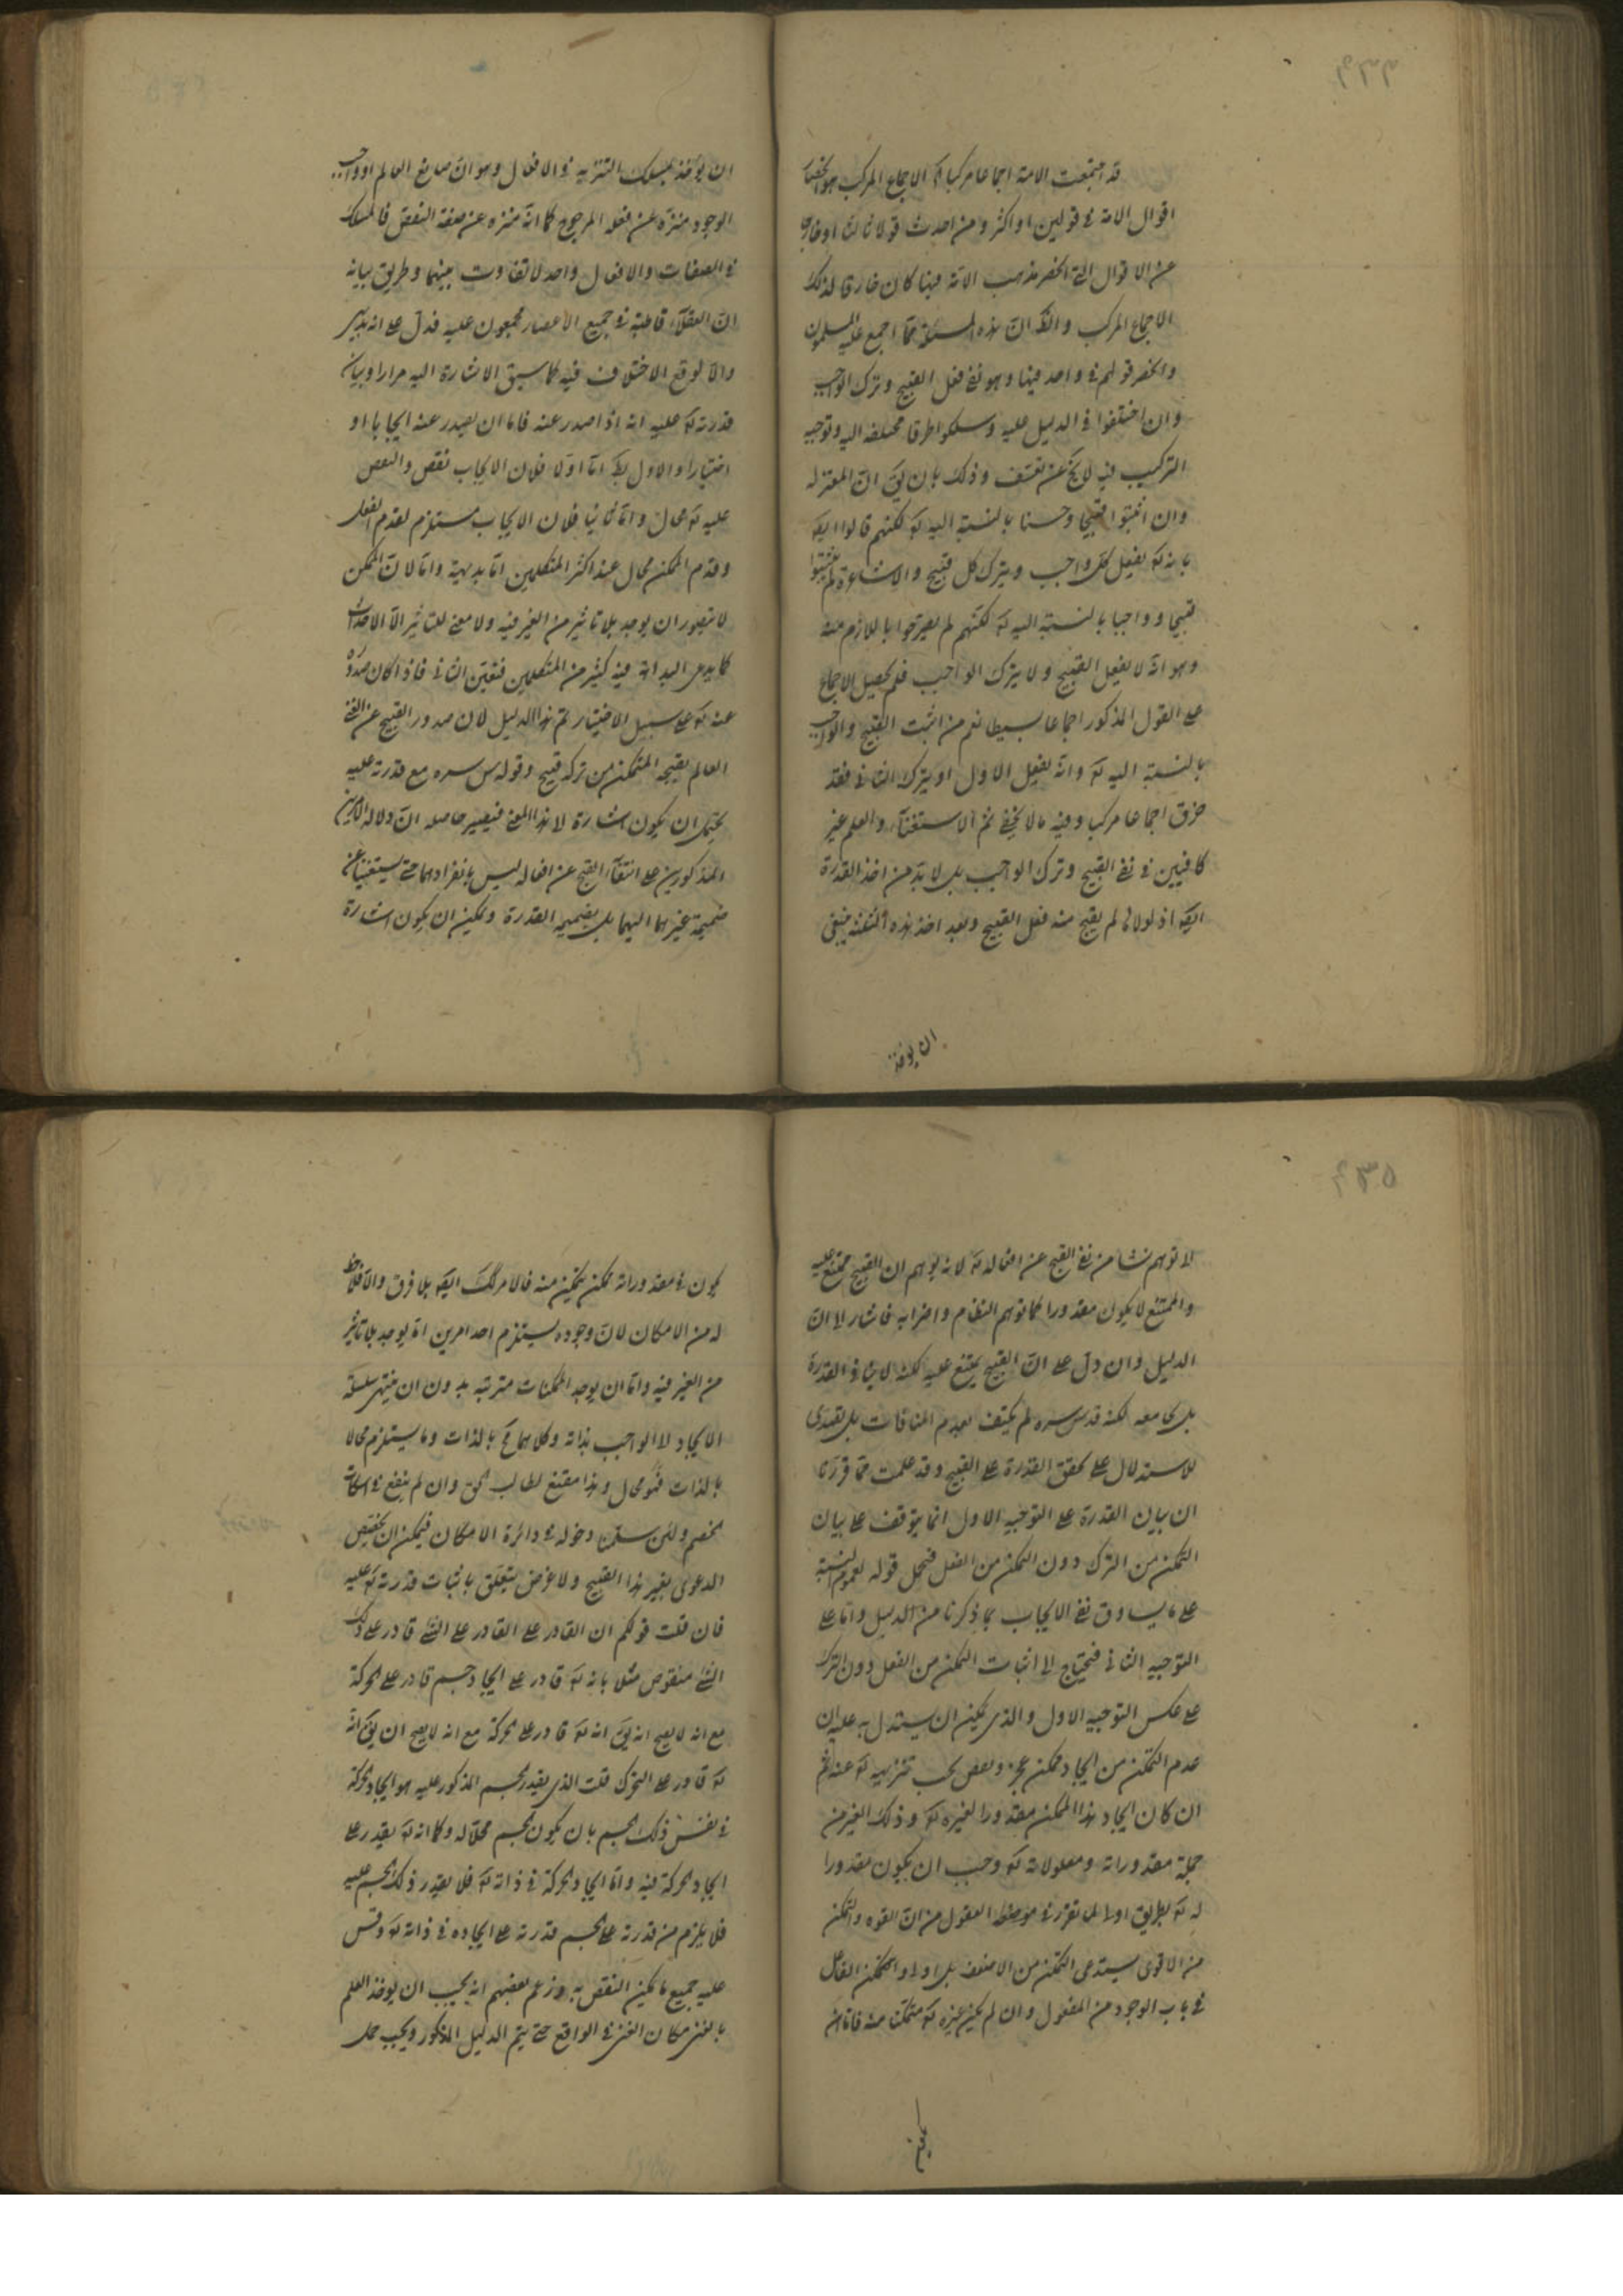 قد اجتمعت الامة اجماعا مركبا الاجماع المركب هو انحصار
اقوال الامة فى قولين او اكثر ومن احدث قولا ثالثا او خارجا
عن الاقوال التى انحصر مذهب الامة فيها كان خارقا لذلك
الاجماع المركب و ان هذه المسئلة مما اجمع عليه المسلمون
وانحصر قولهم فى واحد فيها وهو نفى فعل القبيح وترك الواجب
وان اختلفوا فى الدليل عليه وسلكوا طرقا مختلفة اليه وتوجيه
التركيب فيه لا يخ عن تعسف وذلك بان يق ان المعتزلة
وان اثبتوا قبيحا وحسنا بالنسبة اليه ته لكنهم قالوا
بانه تع يفعل كل واجب ويترك كل قبيح والاشاعرة لم يثبتوا
قبيحا وواجبا بالنسبة اليه تع لكنهم لم يصرحوا باللازم منه
وهو انه لا يفعل القبيح ولا يترك الواجب فلم يحصل الاجماع
على القول المذكور اجماعا بسيطا نعم من اثبت القبيح والواجب
بالنسبة اليه تع وانه يفعل الاول او يترك الثانى فقد
خرق اجماعا مركبا وفيه ما لا يخفى ثم الاستغناء والعلم غير
كافيين فى نفى القبيح وترك الواجب بل لا بد من اخذ القدرة
ايضا اذ لولاها لم يقبح منه فعل القبيح وبعد اخذ هذه الثلثة ينبغى
ان يؤخذ
ان يؤخذ مسلك التنزيه فى الافعال وهو ان صانع العالم او واجب
الوجود منزه عن فعله المرجوح كما انه منزه عن صفة النقص فالمسلك
فى الصفات والافعال واحد لا تفاوت بينهما وطريق بيانه
ان العقلاء قاطبة فى جميع الاعصار مجمعون عليه فدل على انه بديهى
والا لوقع الاختلاف فيه كما سبق الاشارة اليه مرارا وبيان
قدرته تع عليه انه اذا صدر عنه فاما ان يصدر عنه ايجابا او
اختيارا والاول بط اما اولا فلان الايجاب نقص والنقص
عليه تع محال واما ثانيا فلان الايجاب مستلزم لقدم الفعل
وقدم الممكن محال عند اكثر المتكلمين اما بديهية واما لان الممكن
لا يتصور ان يوجد بلا تاثير من الغير فيه ولا معنى للتاثير الا الاحداث
كما يدعى البداهة فيه كثير من المتكلمين فتعين الثانى فاذا كان صدوره
عنه تع على سبيل الاختيار تم هذا الدليل لان صدور القبيح عن الغنى
العالم بقبحه المتمكن من تركه قبيح وقوله س سره مع قدرته عليه
يحتمل ان يكون اشارة لا هذا المعنى فيصير حاصله ان دلالة الامرين
المذكورين على انتفاء القبح عن افعاله ليس بانفرادهما حتى يستغنيا عن
ضميمة غيرهما اليهما بل بضميمة القدرة ويمكن ان يكون اشارة
لا توهم نشا من نفى القبيح عن افعاله تع لانه يوهم ان القبيح ممتنع عليه
والممتنع لا يكون مقدورا كما توهم النظام واضرابه فاشار الى ان
الدليل وان دل على ان القبيح يمتنع عليه لكنه لا ينافى القدرة
بل يجامعه لكنه قدس سره لم يكتف بعدم المنافات بل تصدى
للاستدلال على تحقق القدرة على القبيح وقد علمت مما قررنا
ان بيان القدرة على التوجيه الاول انما يتوقف على بيان
التمكن من الترك دون التمكن من الفعل فيحمل قوله لعموم النسبة
على ما يساوق نفى الايجاب بما ذكرنا من الدليل واما على
التوجيه الثانى فيحتاج الى اثبات التمكن من الفعل دون الترك
على عكس التوجيه الاول والذى يمكن ان يستدل به عليه ان
عدم التمكن من ايجاد ممكن عجز ونقص يجب تنزيهه تع عنه ثم
ان كان ايجاد هذا الممكن مقدورا لغيره تع وذلك الغير من
جملة مقدوراته ومعلولاته تع وجب ان يكون مقدورا
له تع بطريق اولى لما تقرر فى العقول من ان القوة والتمكن
من الاقوى يستدعى التمكن من الاضعف بل اولى والتمكن الفاعل
فى باب الوجود من المفعول وان لم يكن غيره تع متمكنا منه فاما ان
يكون
يكون فى مقدوراته ممكن يتمكن منه فالامر كك ايضا بلا فرق والا فلا حظ
له من الامكان لان وجوده يستلزم احد امرين اما يوجد بلا تاثير
من الغير فيه واما ان يوجد الممكنات مترتبه بدون ان ينتهى سلسلة
الايجاد لا الواجب بذاته وكلاهما مح بالذات وما يستلزم محالا
بالذات فهو محال وهذا مقنع لطالب الحق وان لم ينفع فى اسكات
الخصم ولئن سلمنا دخوله فى دائرة الامكان فيمكن ان يختص
الدعوى بغير هذا القبيح ولا غرض يتعلق باثبات قدرته تع عليه
فان قلت قولكم ان القادر على القادر على الشئ قادر على ذلك
الشئ منقوض مثلا بانه تع قادر على ايجاد جسم قادر على الحركة
مع انه لا يصح انه يق انه تع قادر على الحركة مع انه لا يصح ان يق انه
تع قادر على التحرك قلت الذى يقدر الجسم المذكور عليه هو ايجاد الحركة
فى نفس ذلك الجسم بان يكون الجسم محلا له وكما انه تع يقدر على
ايجاد الحركة فيه واما ايجاد الحركة فى ذاته تع فلا يقدر ذلك الجسم عليه
فلا يلزم من قدرته على الجسم قدرته على ايجاده فى ذاته تع وقس
عليه جميع ما يمكن النقض به وزعم بعضهم انه يجب ان يؤخذ العلم
بالغنى مكان الغنى فى الواقع حتى يتم الدليل المذكور ويجب حمل